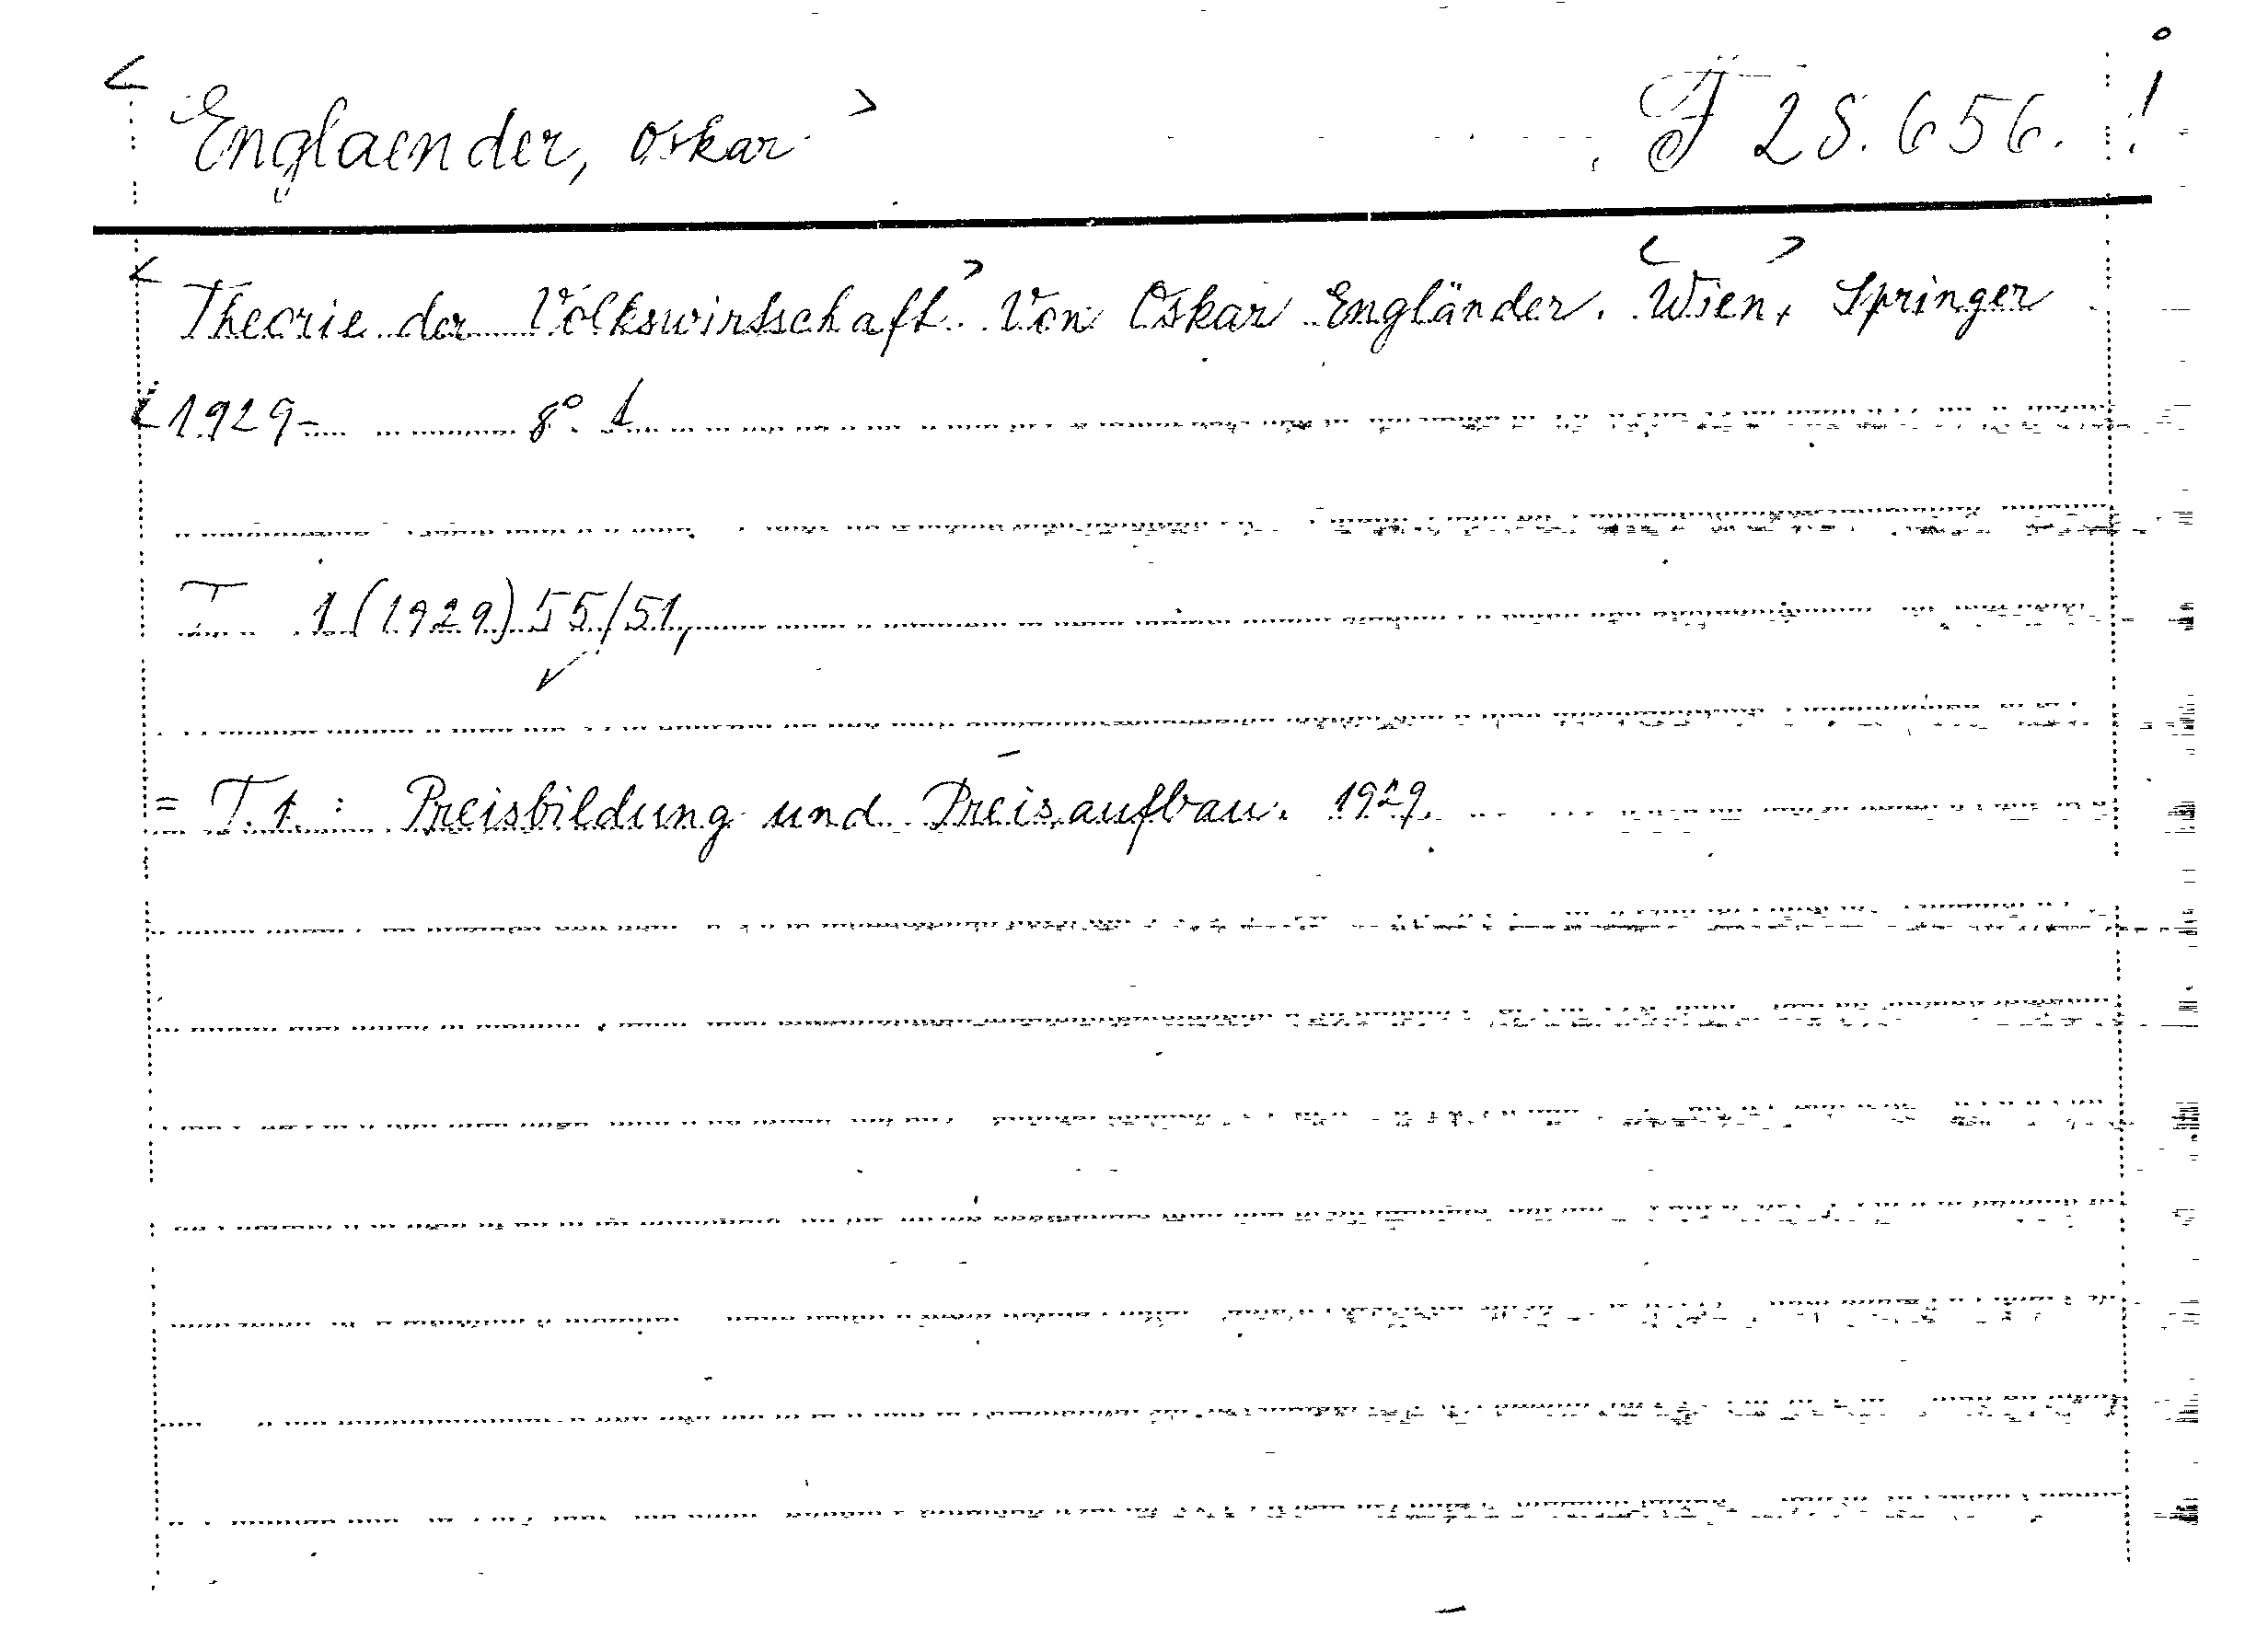 < Englaender, Oskar > F 28.656. !
< Theorie der Volkswirtschaft. > Von Oskar Engländer. < Wien, > Springer
< 1929- 8° 1
T 1 (1929) 55/51,
= T. 1. : Preisbildung und Preisaufbau. 1929.